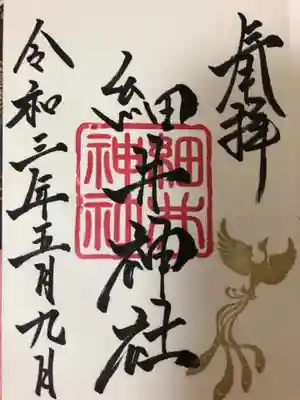 奉拝
細井神社
細井
神社
令和三年五月九日